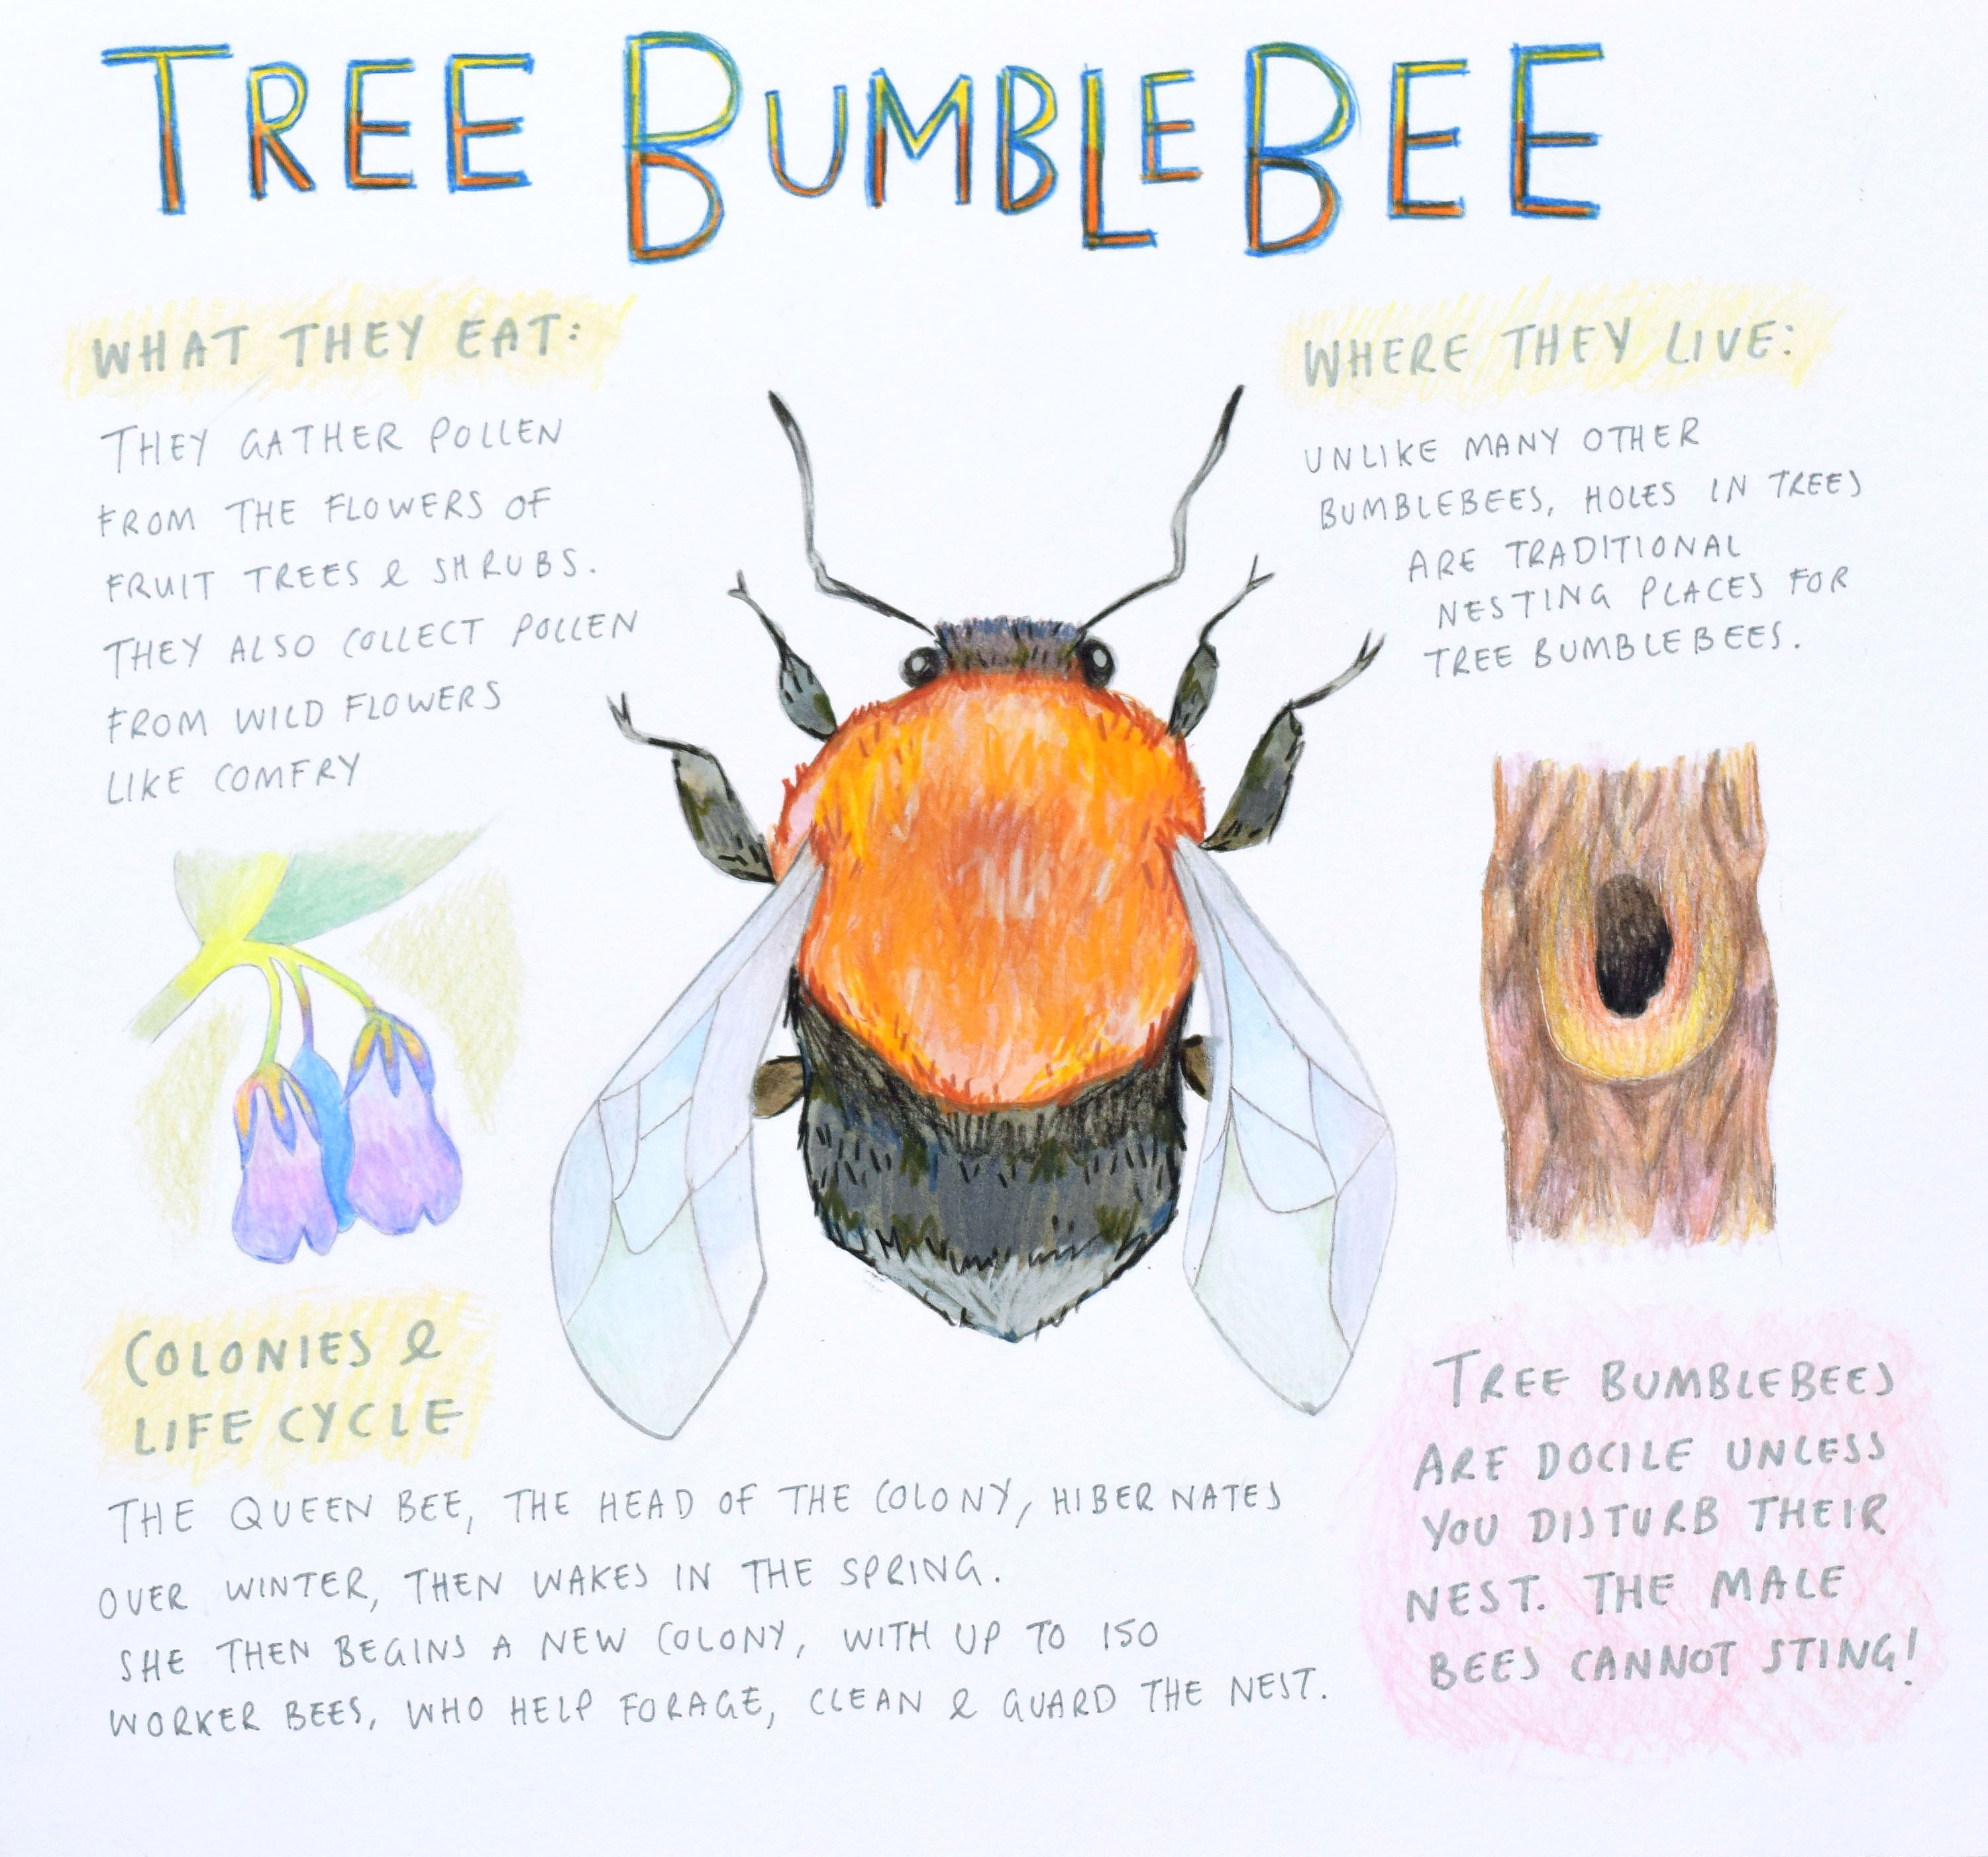 TREE BUMBLEBEE
WHAT THEY EAT:
THEY GATHER POLLEN
FROM THE FLOWERS OF
FRUIT TREES & SHRUBS.
THEY ALSO COLLECT POLLEN
FROM WILD FLOWERS
LIKE COMFRY
WHERE THEY LIVE:
UNLIKE MANY OTHER
BUMBLEBEES, HOLES IN TREES
ARE TRADITIONAL
NESTING PLACES FOR
TREE BUMBLEBEES.
COLONIES &
LIFE CYCLE
THE QUEEN BEE, THE HEAD OF THE COLONY, HIBERNATES
OVER WINTER, THEN WAKES IN THE SPRING.
SHE THEN BEGINS A NEW COLONY, WITH UP TO 150
WORKER BEES, WHO HELP FORAGE, CLEAN & GUARD THE NEST.
TREE BUMBLEBEES
ARE DOCILE UNLESS
YOU DISTURB THEIR
NEST. THE MALE
BEES CANNOT STING!